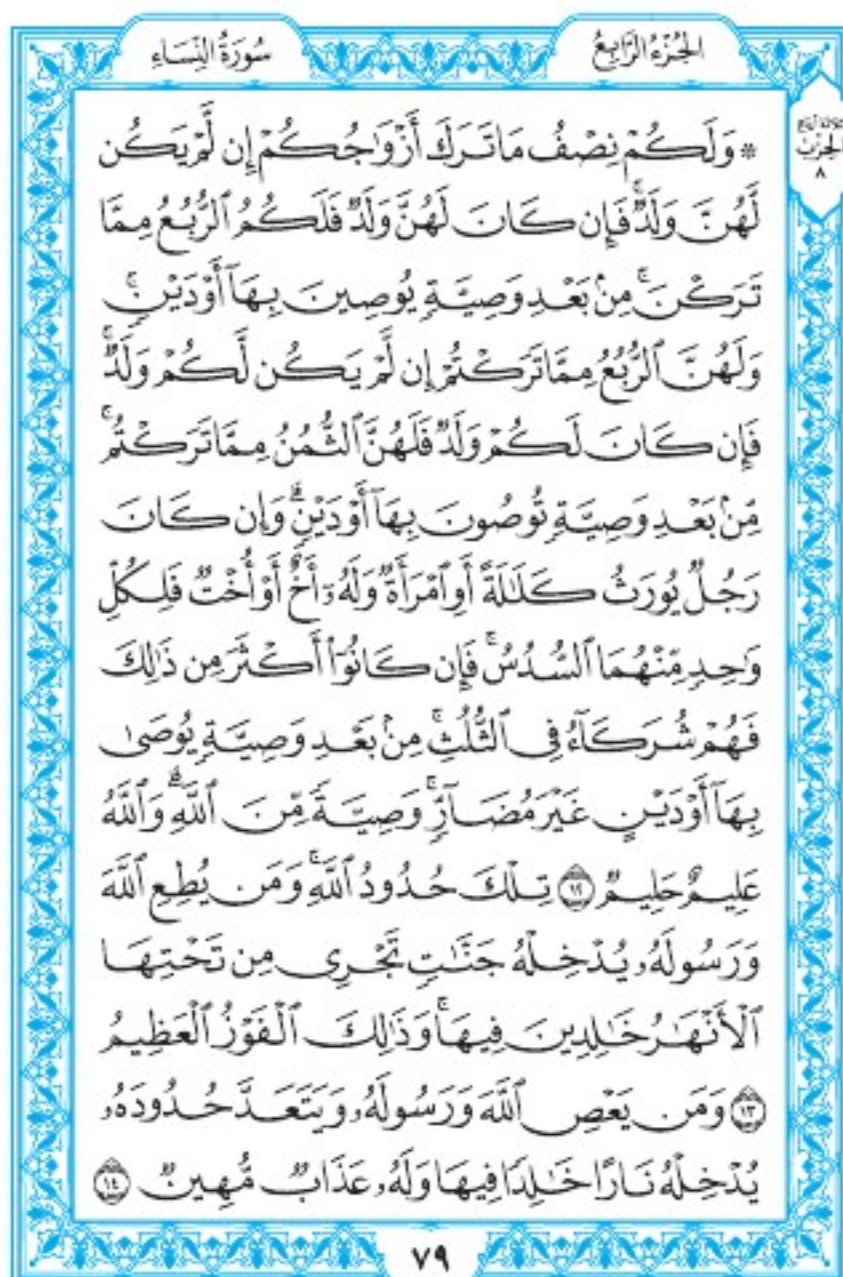 الجُزْءُ الرَّابِعُ
سُورَةُ النِّسَاءِ
الحِزْب
٨
* وَلَكُمْ نِصْفُ مَا تَرَكَ أَزْوَٰجُكُمْ إِن لَّمْ يَكُن
لَّهُنَّ وَلَدٌۚ فَإِن كَانَ لَهُنَّ وَلَدٌ فَلَكُمُ ٱلرُّبُعُ مِمَّا
تَرَكْنَۚ مِنۢ بَعْدِ وَصِيَّةٍ يُوصِينَ بِهَآ أَوْ دَيْنٍۚ
وَلَهُنَّ ٱلرُّبُعُ مِمَّا تَرَكْتُمْ إِن لَّمْ يَكُن لَّكُمْ وَلَدٌۚ
فَإِن كَانَ لَكُمْ وَلَدٌ فَلَهُنَّ ٱلثُّمُنُ مِمَّا تَرَكْتُمۚ
مِّنۢ بَعْدِ وَصِيَّةٍ تُوصُونَ بِهَآ أَوْ دَيْنٍۗ وَإِن كَانَ
رَجُلٌ يُورَثُ كَلَٰلَةً أَوِ ٱمْرَأَةٌ وَلَهُۥٓ أَخٌ أَوْ أُخْتٌ فَلِكُلِّ
وَٰحِدٍ مِّنْهُمَا ٱلسُّدُسُۚ فَإِن كَانُوٓا۟ أَكْثَرَ مِن ذَٰلِكَ
فَهُمْ شُرَكَآءُ فِى ٱلثُّلُثِۚ مِنۢ بَعْدِ وَصِيَّةٍ يُوصَىٰ
بِهَآ أَوْ دَيْنٍ غَيْرَ مُضَآرٍّۚ وَصِيَّةً مِّنَ ٱللَّهِۗ وَٱللَّهُ
عَلِيمٌ حَلِيمٌ ١٢ تِلْكَ حُدُودُ ٱللَّهِۚ وَمَن يُطِعِ ٱللَّهَ
وَرَسُولَهُۥ يُدْخِلْهُ جَنَّٰتٍ تَجْرِى مِن تَحْتِهَا
ٱلْأَنْهَٰرُ خَٰلِدِينَ فِيهَاۚ وَذَٰلِكَ ٱلْفَوْزُ ٱلْعَظِيمُ
١٣ وَمَن يَعْصِ ٱللَّهَ وَرَسُولَهُۥ وَيَتَعَدَّ حُدُودَهُۥ
يُدْخِلْهُ نَارًا خَٰلِدًا فِيهَا وَلَهُۥ عَذَابٌ مُّهِينٌ ١٤
٧٩